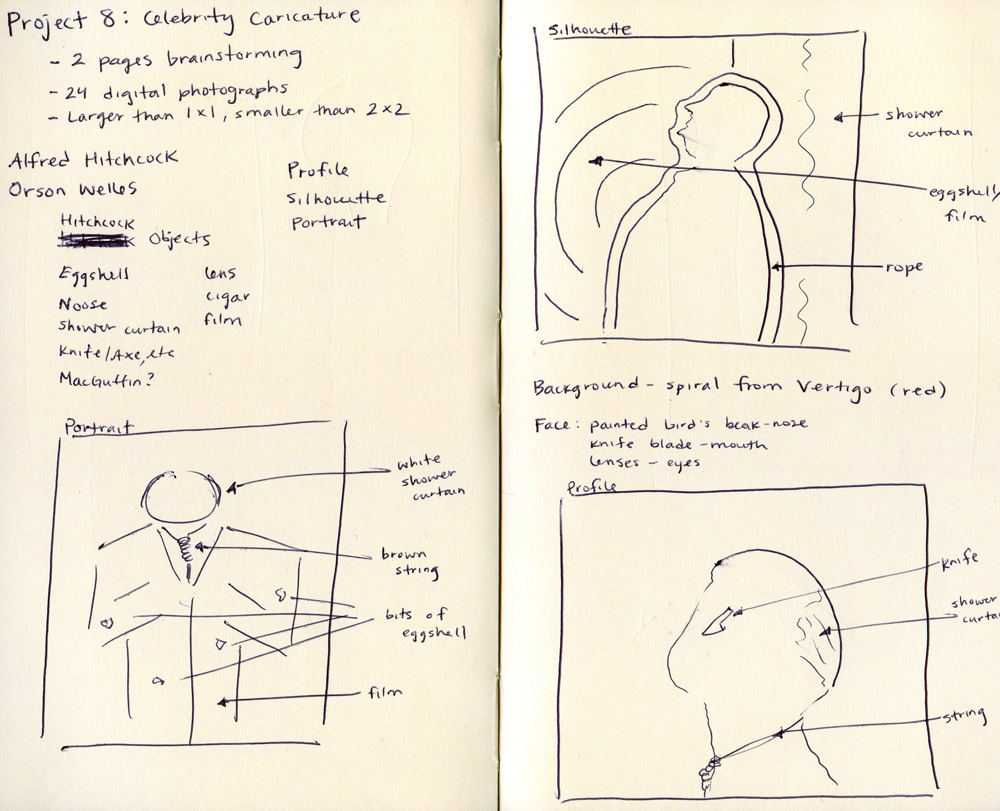 Project 8: Celebrity Caricature
- 2 pages brainstorming
- 24 digital photographs
- Larger than 1x1, smaller than 2x2
Alfred Hitchcock
Orson Welles
Profile
Silhouette
Portrait
Hitchcock
Objects
Eggshell
Noose
shower curtain
Knife/Axe, etc
MacGuffin?
lens
cigar
film
Portrait
white
shower
curtain
brown
string
bits of
eggshell
film
Silhouette
shower
curtain
eggshell/
film
rope
Background - spiral from Vertigo (red)
Face: painted bird's beak-nose
knife blade - mouth
lenses - eyes
Profile
knife
shower
curtain
string